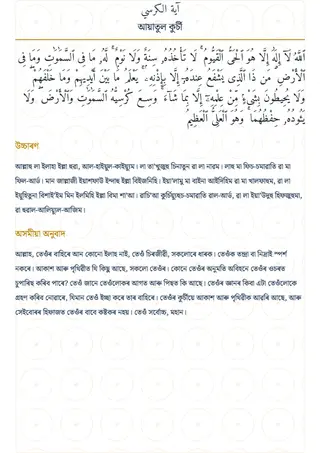 آية الكرسي
আয়াতুল কুৰ্চী
اللَّهُ لَآ إِلَٰهَ إِلَّا هُوَ الْحَيُّ الْقَيُّومُ ۚ لَا تَأْخُذُهُۥ سِنَةٌ وَلَا نَوْمٌ ۚ لَّهُۥ مَا فِى السَّمَٰوَٰتِ وَمَا فِى
الْأَرْضِ ۗ مَن ذَا الَّذِى يَشْفَعُ عِندَهُۥٓ إِلَّا بِإِذْنِهِۦ ۚ يَعْلَمُ مَا بَيْنَ أَيْدِيهِمْ وَمَا خَلْفَهُمْ ۖ
وَلَا يُحِيطُونَ بِشَىْءٍ مِّنْ عِلْمِهِۦٓ إِلَّا بِمَا شَآءَ ۚ وَسِعَ كُرْسِيُّهُ السَّمَٰوَٰتِ وَالْأَرْضَ ۖ وَلَا
يَـُٔودُهُۥ حِفْظُهُمَا ۚ وَهُوَ الْعَلِىُّ الْعَظِيمُ
উচ্চাৰণ
আল্লাহু লা ইলাহা ইল্লা হুৱা, আল-হাইয়ুল-কাইয়ুম। লা তা'খুজুহু চিনাতুন ৱা লা নাৱম। লাহু মা ফিচ-চমাৱাতি ৱা মা
ফিল-আৰ্ড। মান জাল্লাজী ইয়াশফাউ ইন্দাহু ইল্লা বিইজনিহি। ইয়া'লামু মা বাইনা আইদিহিম ৱা মা খালফাহুম, ৱা লা
ইয়ুহিতুনা বিশাই'ইম মিন ইলমিহি ইল্লা বিমা শা'আ। ৱাচি'আ কুৰ্চিয়্যুহুচ-চমাৱাতি ৱাল-আৰ্ড, ৱা লা ইয়া'উদুহু হিফজুহুমা,
ৱা হুৱাল-আলিয়্যুল-আজিম।
অসমীয়া অনুবাদ
আল্লাহ, তেওঁৰ বাহিৰে আন কোনো ইলাহ নাই, তেওঁ চিৰজীৱী, সকলোৰে ধাৰক। তেওঁক তন্দ্ৰা বা নিদ্ৰাই স্পৰ্শ
নকৰে। আকাশ আৰু পৃথিৱীত যি কিছু আছে, সকলো তেওঁৰ। কোনে তেওঁৰ অনুমতি অবিহনে তেওঁৰ ওচৰত
চুপাৰিছ কৰিব পাৰে? তেওঁ জানে তেওঁলোকৰ আগত আৰু পিছত কি আছে। তেওঁৰ জ্ঞানৰ কিবা এটা তেওঁলোকে
গ্ৰহণ কৰিব নোৱাৰে, যিমান তেওঁ ইচ্ছা কৰে তাৰ বাহিৰে। তেওঁৰ কুৰ্চীয়ে আকাশ আৰু পৃথিৱীক আৱৰি আছে, আৰু
সেইবোৰৰ হিফাজত তেওঁৰ বাবে কষ্টকৰ নহয়। তেওঁ সৰ্বোচ্চ, মহান।